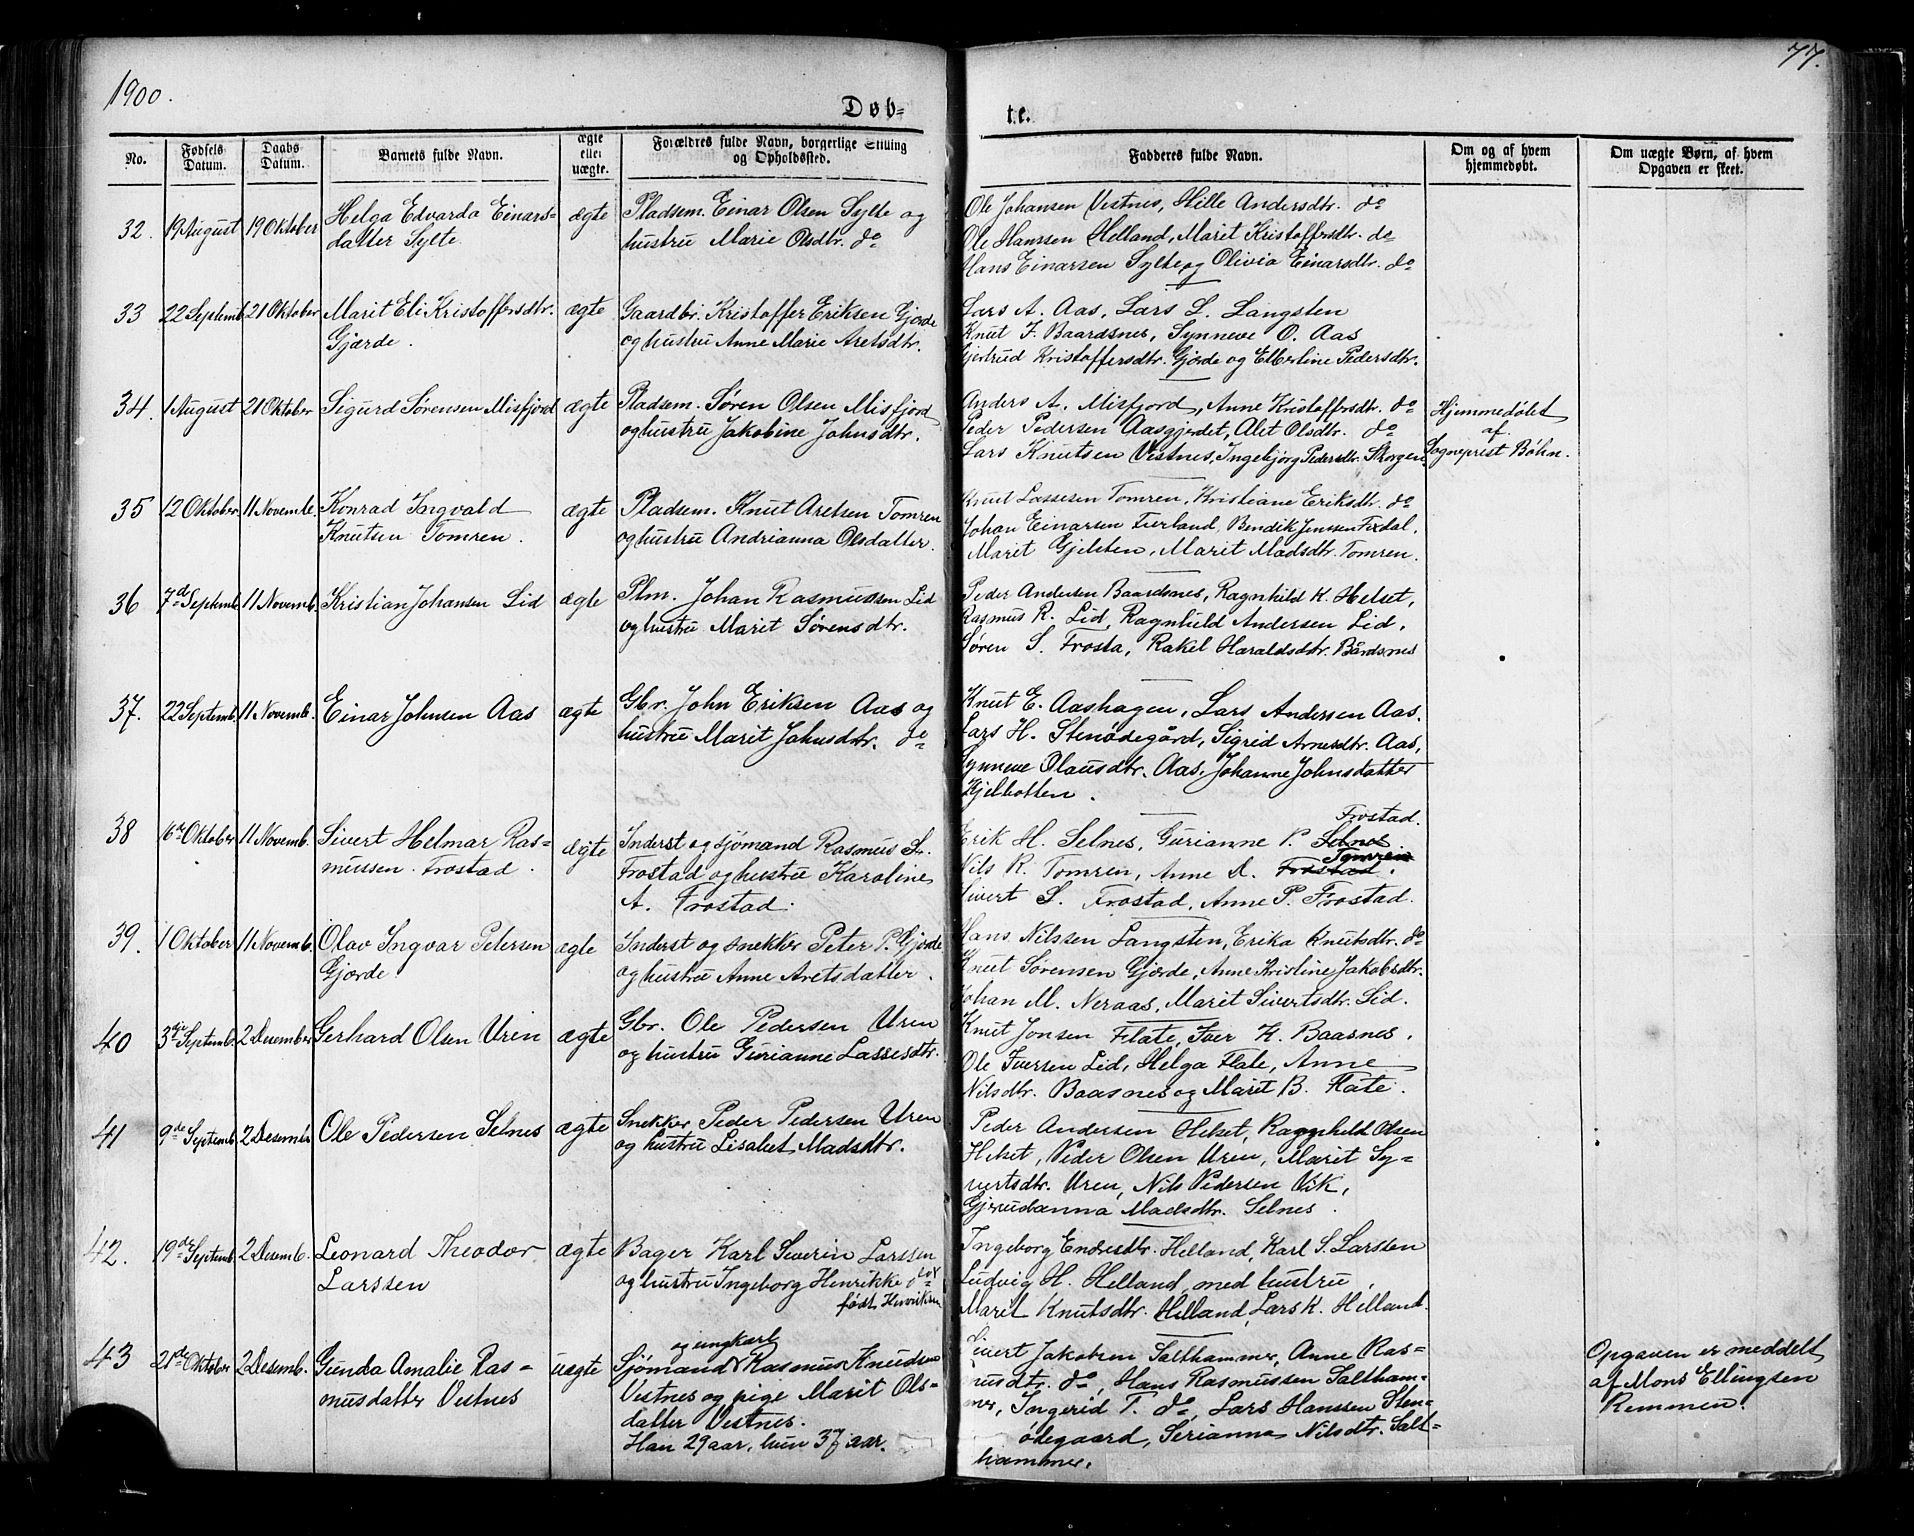 1900.
77.
Døb=
te.
No.
Fødsels Datum.
Daabs Datum.
Barnets fulde Navn.
ægte eller uægte.
Forældres fulde Navn, borgerlige Stilling og Opholdssted.
Fadderes fulde Navn.
Om og af hvem hjemmedøbt.
Om uægte Børn, af hvem Opgaven er skeet.
32. 19 August 19 Oktober Helga Edvarda Einars= ægte Pladsem. Einar Olsen Sylte og
datter Sylte. hustru Marie Olsdtr. do
Ole Johansen Vestnes, Hille Andersdtr. do
Ole Hanssen Helland, Marit Kristoffersdtr. do
Hans Einarsen Sylte og Olivia Einarsdtr. do
33 22 Septemb. 21 Oktober Marit Eli Kristoffersdtr. ægte Gaardbr. Kristoffer Eriksen Gjørde
Gjærde. og hustru Anne Marie Aretsdtr.
Lars A. Aas, Lars L. Langsten
Knut J. Baardsnes, Synneve O. Aas
Gjertrud Kristoffersdtr. Gjørde og Elbertine Pedersdtr.
34. 1 August 21 Oktober Sigurd Sørensen Misfjord ægte Pladsem. Søren Olsen Misfjord
og hustru Jakobine Johnsdtr.
Anders A. Misfjord, Anne Kristoffersdtr. do
Peder Pedersen Aasgjerdet, Alet Olsdtr. do
Lars Knutsen Vestnes, Ingebjørg Pedersdtr. Skorgen
Hjemmedøbt
af
Sogneprest Bøhn.
35 12 Oktober 11 Novemb. Konrad Ingvald ægte Pladsem. Knut Aretsen Tomren
Knutsen Tomren. og hustru Andrianna Olsdatter.
Knut Lassesen Tomren, Kristiane Eriksdtr. do
Johan Einarsen Furland, Bendik Jenssen Fixdal.
Marit Gjelsten, Marit Madsdtr. Tomren.
36 7de Septemb. 11 Novemb. Kristian Johansen Lid ægte Plm. Johan Rasmussen Lid
og hustru Marit Sørensdtr.
Peder Andersen Baardsnes, Ragnhild K. Helset,
Rasmus R. Lid, Ragnhild Andersen Lid,
Søren S. Frosta, Rakel Haraldsdtr. Bårdsnes
37. 22 Septemb. 11 Novemb. Einar Johnsen Aas ægte Gbr. John Eriksen Aas og
hustru Marit Johnsdtr. do
Knut E. Aashagen, Lars Andersen Aas.
Lars H. Stenødegård, Sigrid Arnesdtr. Aas,
Synneve Olausdtr. Aas, Johanne Johnsdatter
Kjelbotten.
38 16de Oktober 11 Novemb. Sivert Helmar Ras= ægte Inderst og sjømand Rasmus S.
mussen Frostad. Frostad og hustru Karoline
A. Frostad.
Frostad.
Erik H. Selnes, Gurianne P. Selnes.
Tomren
Nils R. Tomren, Anne D. Frostad.
Sivert S. Frostad, Anne P. Frostad.
39. 1 Oktober 11 Novemb. Olav Ingvar Petersen ægte Inderst og snekker Peter P. Gjørde
Gjørde og hustru Anne Aretsdatter.
Hans Nilssen Langsten, Erika Knutsdtr. do
Knut Sørensen Gjørde, Anne Kristine Jakobsdtr.
Johan M. Neraas, Marit Sivertsdtr. Lid.
40 3die Septemb. 2 Desember Gerhard Olsen Uren ægte Gbr. Ole Pedersen Uren
og hustru Gurianne Lassesdtr.
Knut Jonsen Flate, Iver K. Baasnes.
Ole Iversen Lid, Helga Flate, Anne
Nilsdtr. Baasnes og Marit B. Flate.
41 9de Septemb. 2 Desemb. Ole Pedersen Selnes ægte Snekker Peder Pedersen Uren
og hustru Lisabet Madsdtr.
Peder Andersen Helset, Ragnhild Olsen
Helset, Peder Olsen Uren, Marit Sy=
vertsdtr. Uren, Nils Pedersen Vik,
Gjerudanna Madsdtr. Selnes.
42. 19de Septemb. 2 Desemb. Leonard Theodor ægte Bager Karl Severin Larssen
Larssen og hustru Ingeborg Henrikke do
født Henriksen
Ingeborg Endresdtr. Helland, Karl S. Larsen
Ludvig H. Helland, med hustru,
Marit Knutsdtr. Helland, Lars K. Helland.
og ungkarl
43 21de Oktober 2 Desemb. Gunda Amalie Ras= uægte Sjømand Rasmus Knudsen
musdatter Vestnes Vestnes og pige Marit Ols=
datter Vestnes.
Han 29 aar, hun 37 aar.
Sivert Jakobsen Salthammer, Anne Ras=
musdtr. do, Hans Rasmussen Saltham=
mer, Ingerid T. do, Lars Hanssen Sten=
ødegaard, Serianna Nilsdtr. Salt=
hammer.
Opgaven er meddelt
af Mons Ellingsen
Remmen.